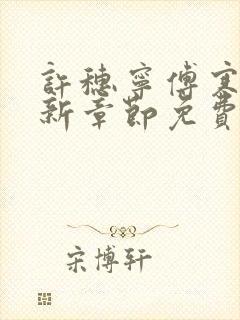 許穗寧傅寒
新章節免費
宋博軒